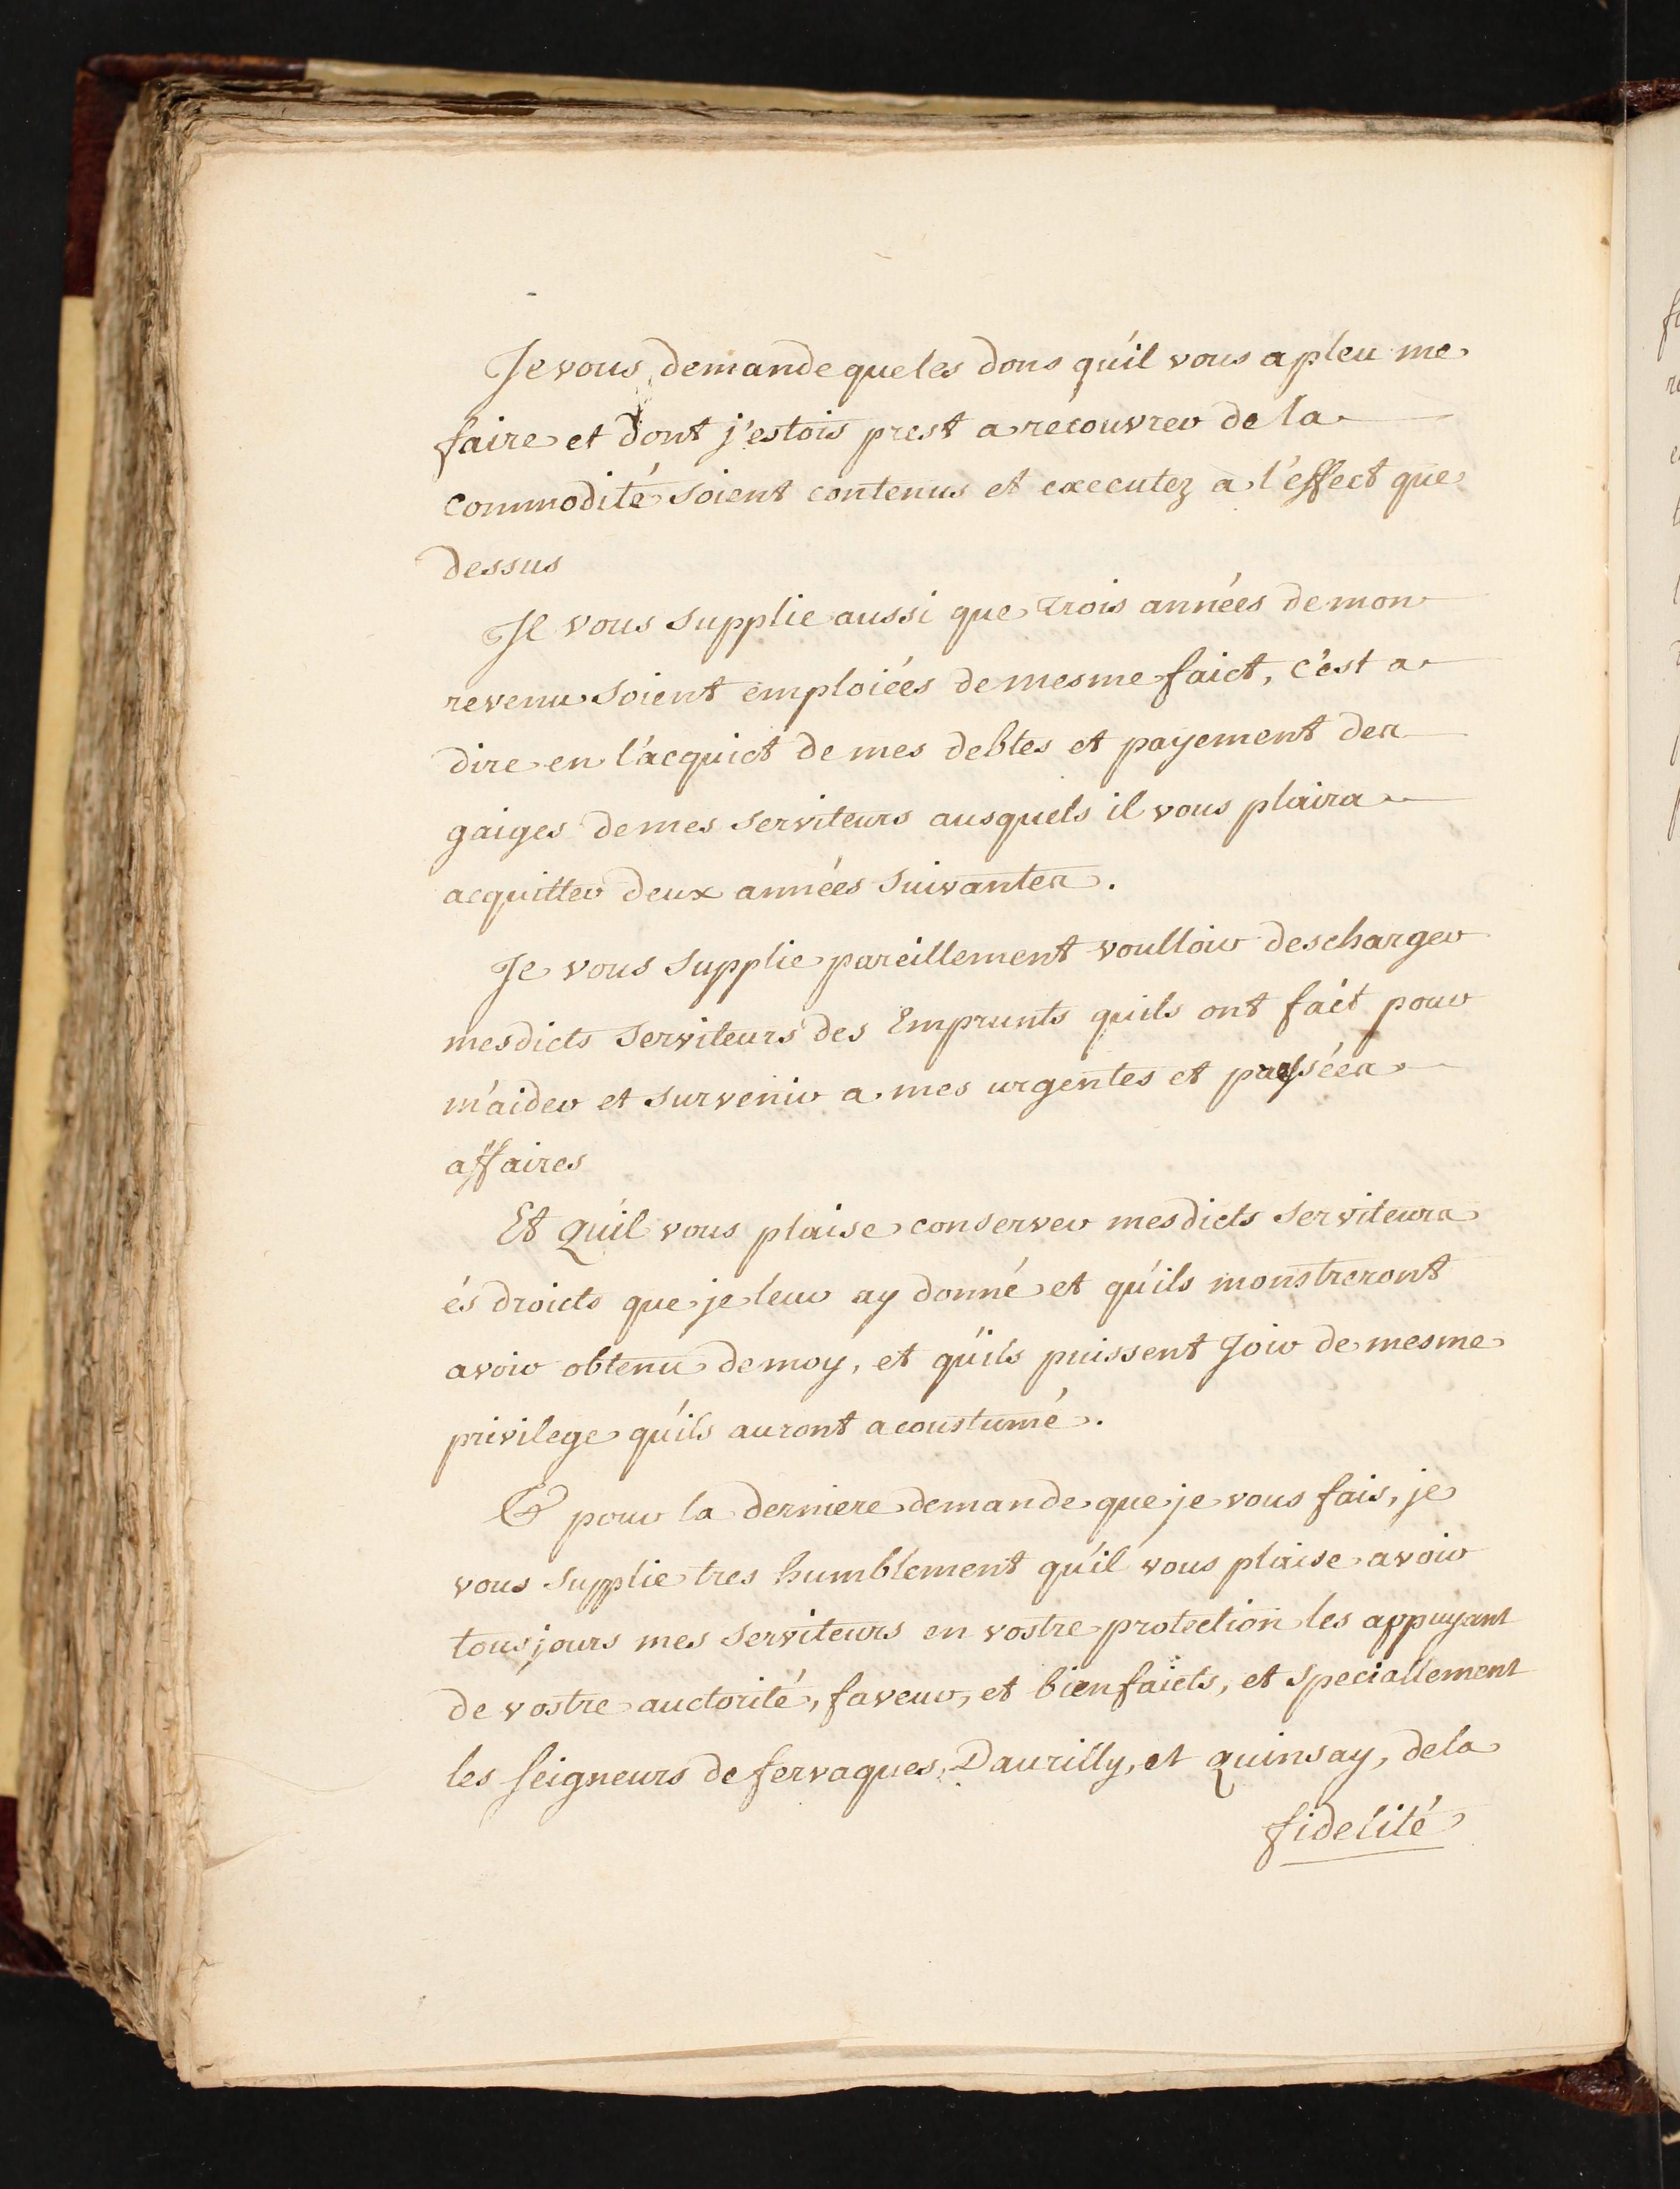 Je vous demande que les dons qu'il vous a pleu me
faire et dont j'estois prest a recouvrer de la
commodité soient contenus et executez a l'effect que
dessus
Je vous supplie aussi que trois années de mon
revenu soient emploiées de mesme faict, c'est a
dire en l'acquict de mes debtes et payement des
gaiges de mes serviteurs ausquels il vous plaira
acquitter deux années suivantes.
Je vous supplie pareillement voulloir descharger
mesdicts serviteurs des Emprunts quils ont fait pour
m'aider et survenir a mes urgentes et pressées
affaires
Et Qu'il vous plaise conserver mesdicts serviteurs
és droicts que je leur ay donné et qu'ils monstreront
avoir obtenu de moy, et qu'ils puissent Joir de mesme
privilege qu'ils auront acoustumé.
Et pour la derniere demande que je vous fais, je
vous supplie tres humblement qu'il vous plaise avoir
tousjours mes serviteurs en vostre protection les appuyant
de vostre auctorité, faveur, et bienfaicts, et speciallement
les seigneurs de fervaques, Daurilly, et Quinsay, de la
fidelité